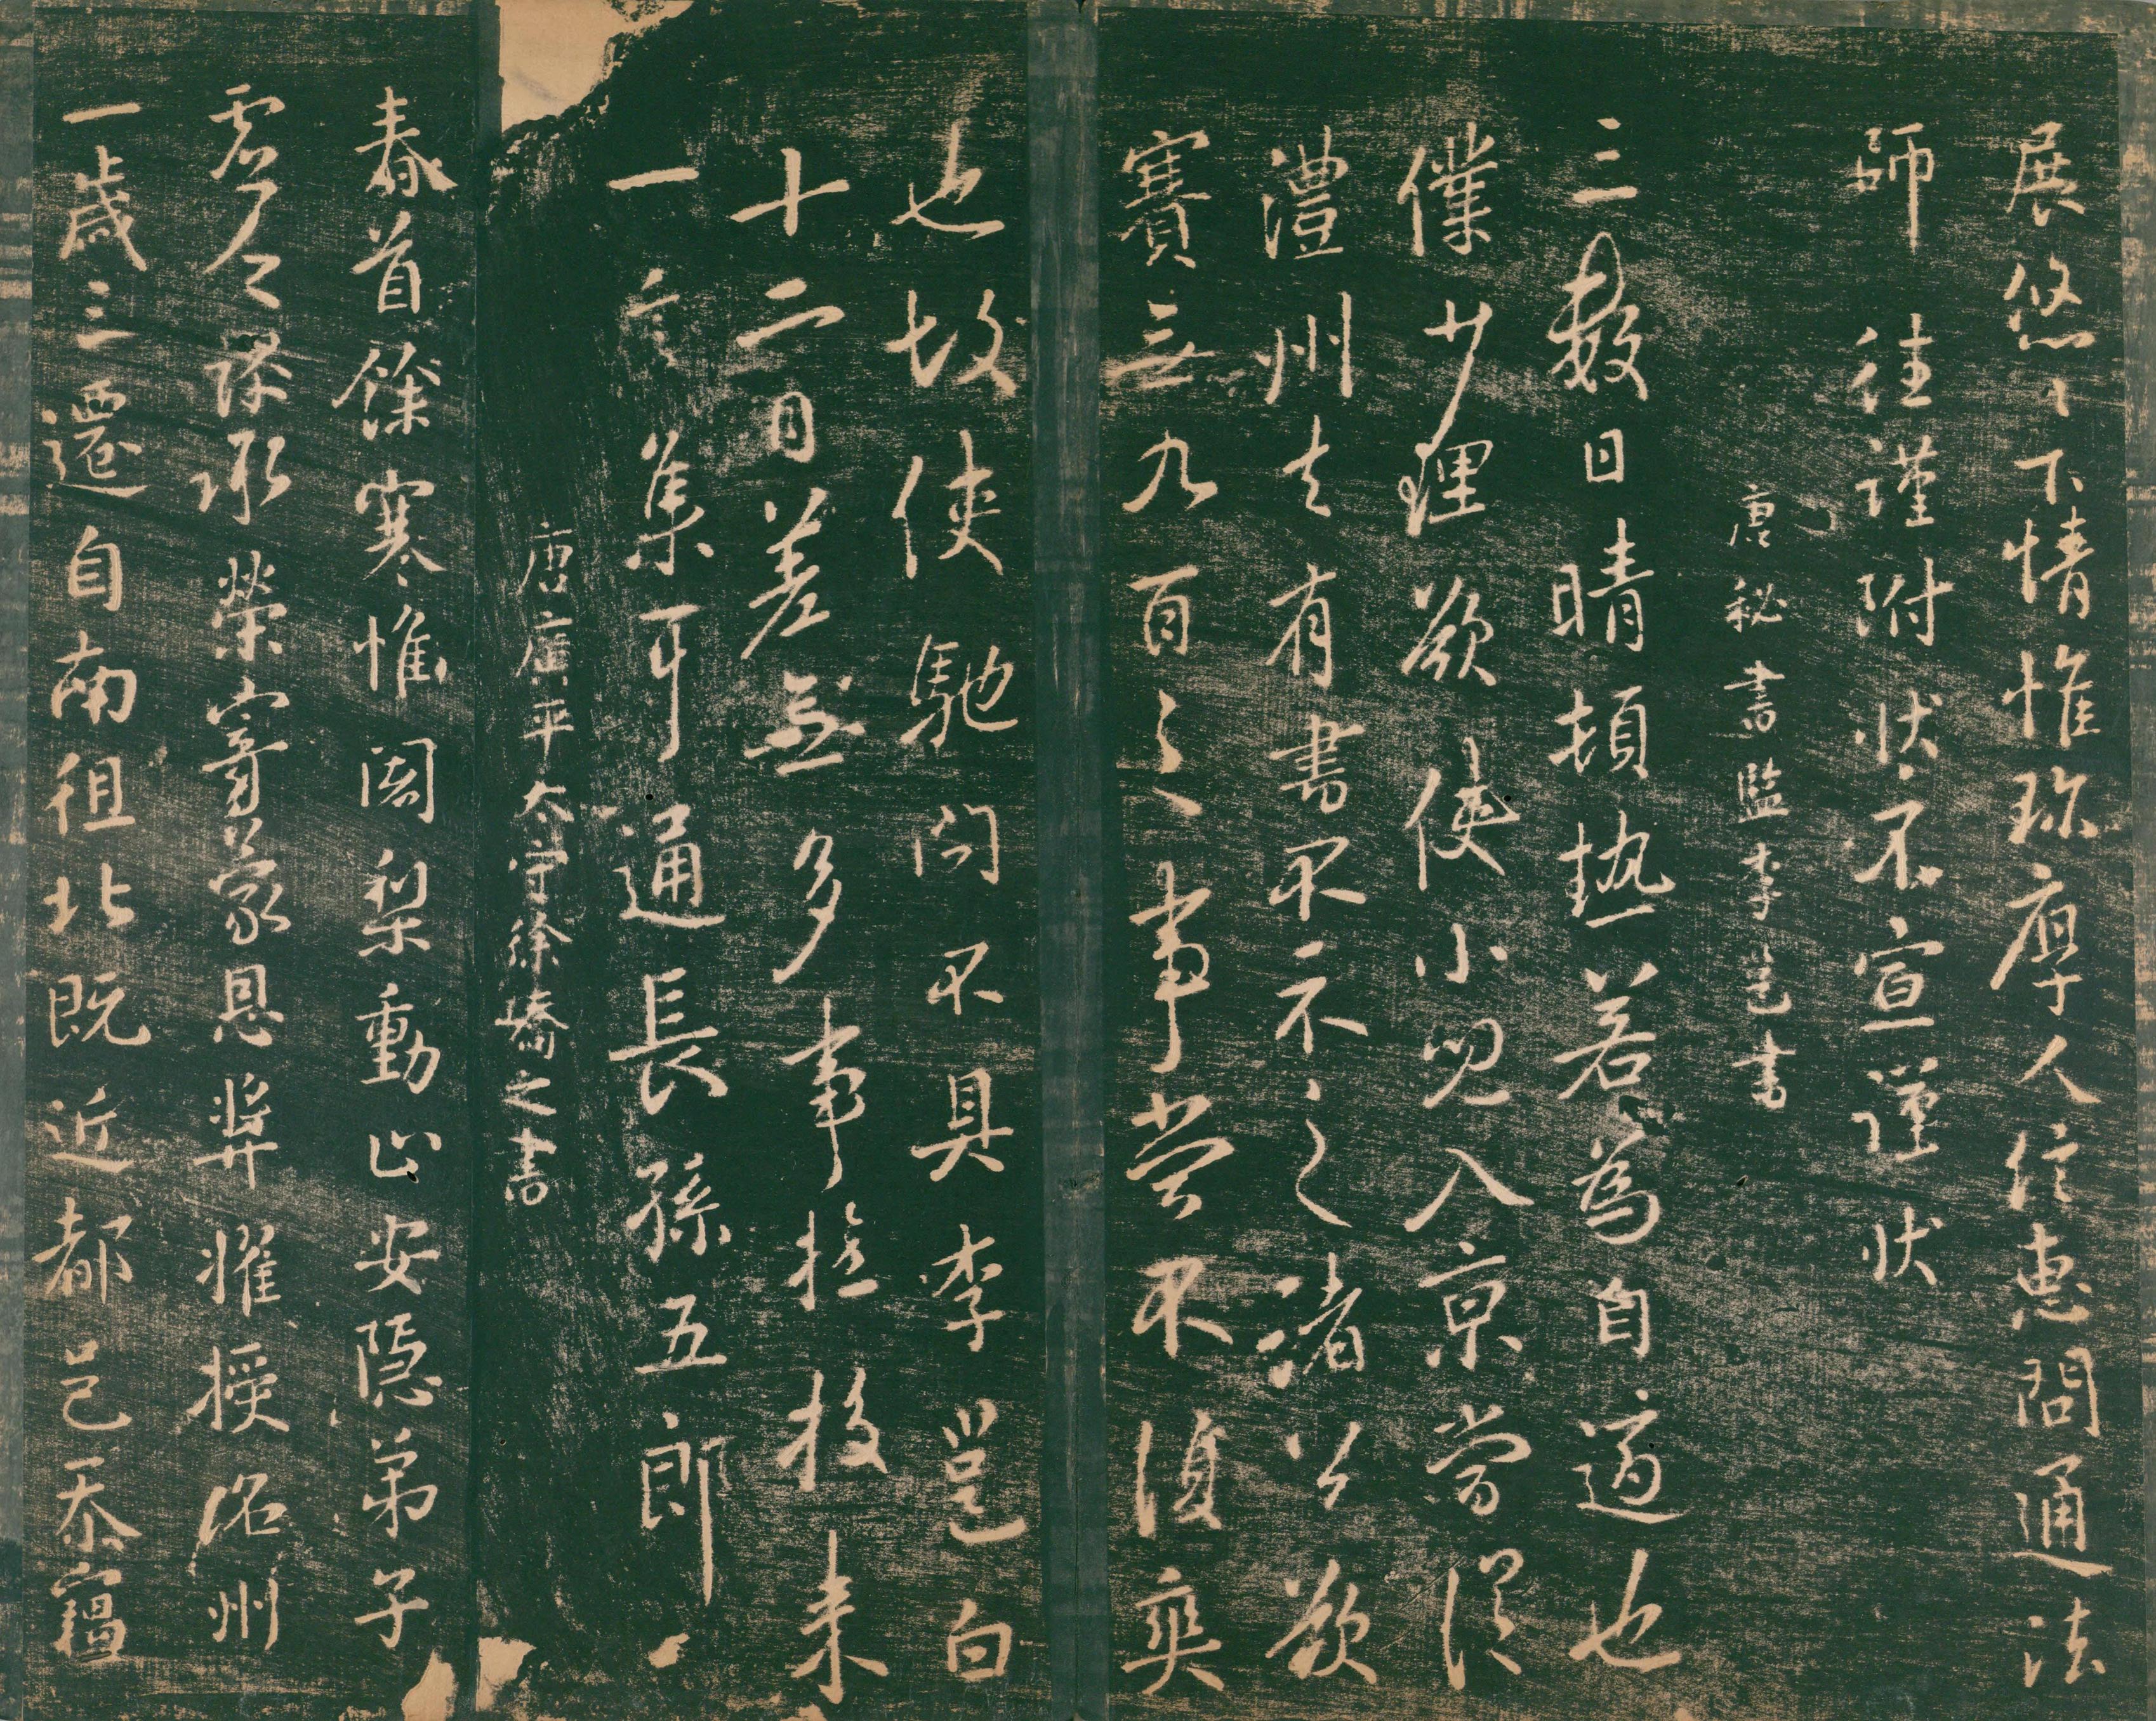 展悠〻下情惟珍厚人信惠問通法
師往謹附狀不宣謹狀
唐秘書監李邕書
三數日晴頓熱若為自適也
僕少理欲使小兒入京當從
澧州去有書不不之諸公欲
賽无九百之事當不復爽
也故使馳問不具李邕白
唐廣平太守徐嶠之書
十二日差無多事能枚来
一言集可通長孫五郎
春首餘寒惟闍梨動止安隱弟子
虛乏謬承榮寄蒙恩奬擢授洺州
一歲三遷自南徂北既近都邑忝竊